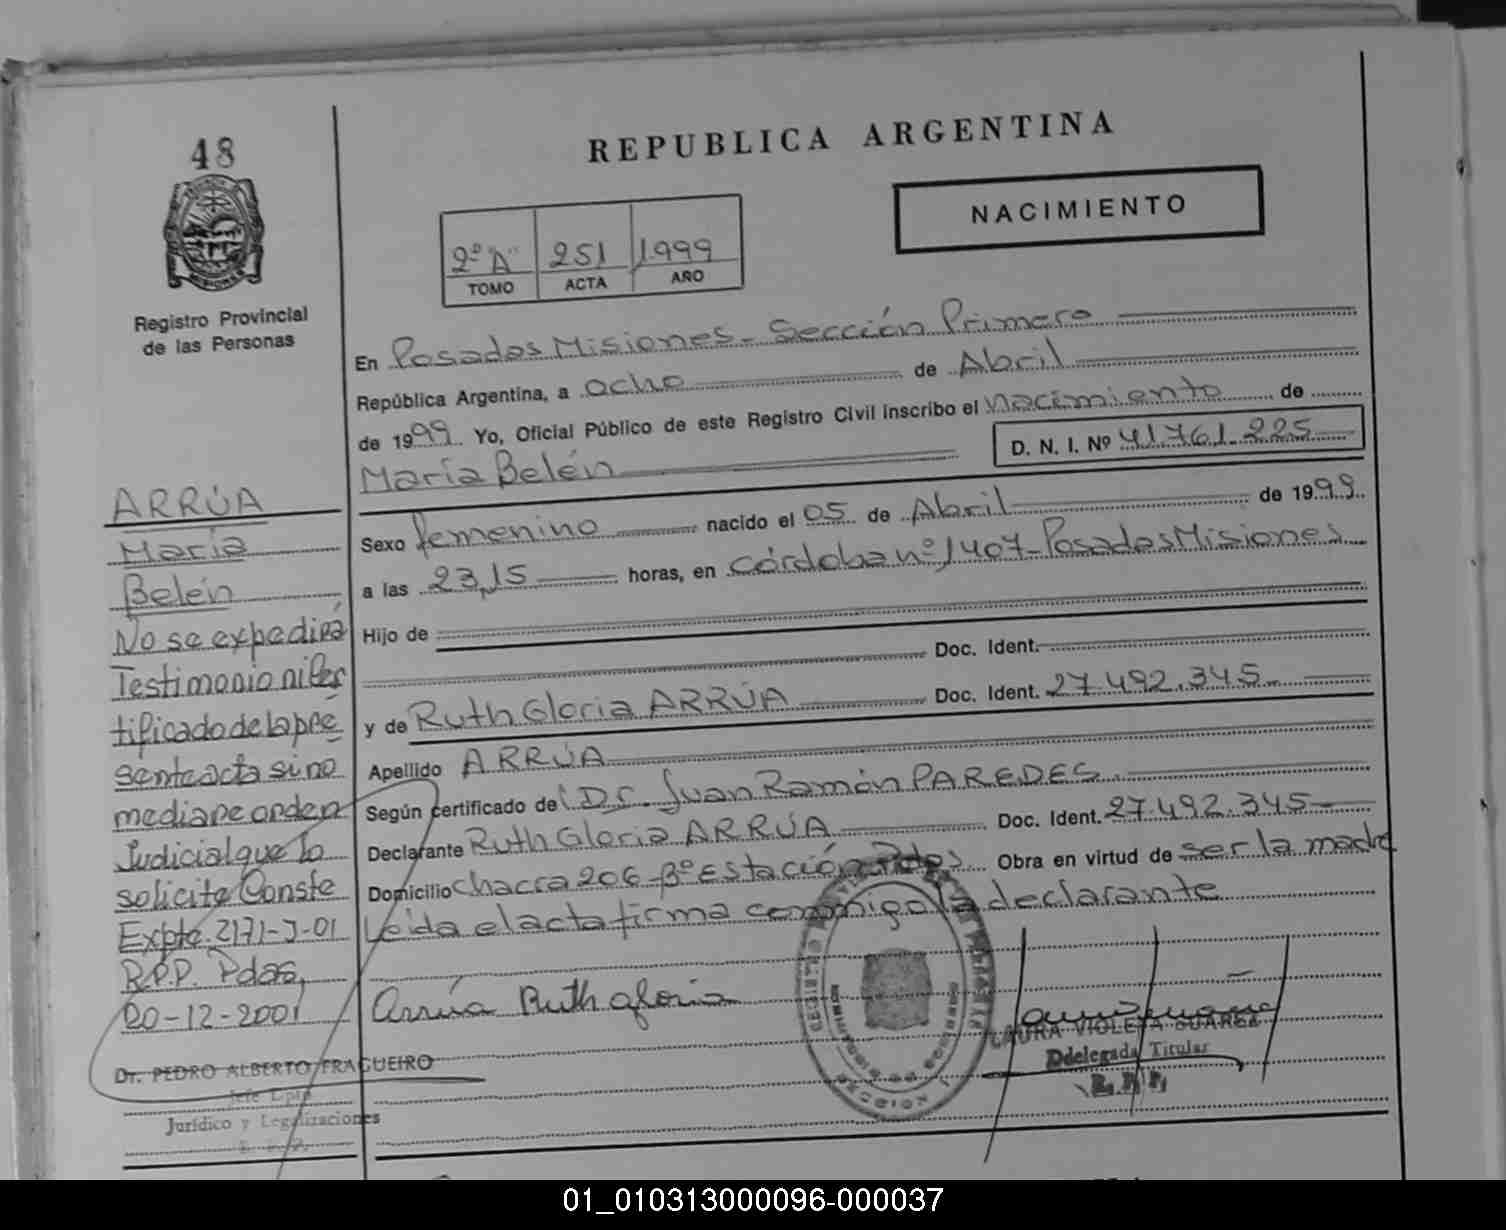 48
Registro Provincial
de las Personas
REPUBLICA ARGENTINA
NACIMIENTO
2º "A" 251 1.999
TOMO ACTA AÑO
En Posadas Misiones - Sección Primera
República Argentina, a ocho de Abril
de 1999. Yo, Oficial Público de este Registro Civil inscribo el nacimiento de
María Belén D. N. I. Nº 41.761.225
Sexo femenino nacido el 05 de Abril de 1999.
a las 23,15 horas, en Córdoba nº 1407 - Posadas Misiones
Hijo de
Doc. Ident.
y de Ruth Gloria ARRÚA Doc. Ident. 27.492.345
Apellido ARRÚA
Según certificado de Dr. Juan Ramón PAREDES
Declarante Ruth Gloria ARRÚA Doc. Ident. 27.492.345
Domicilio Chacra 206 - 3º Estación Pdas. Obra en virtud de ser la madre
Leida el acta firma conmigo la declarante
Arrúa Ruth gloria
LAURA VIOLETA SUAREZ
Ddelegada Titular
R.P.P.
ARRÚA
María
Belén
No se expedirá
Testimonio ni Cer
tificado de la pre
sente acta si no
mediare orden
Judicial que lo
solicite Conste
Expte. 2171-J-01
R.P.P. Pdas,
20-12-2001
Dr. PEDRO ALBERTO FRAGUEIRO
Jefe Dpto.
Jurídico y Legalizaciones
R. P. P.
01_010313000096-000037